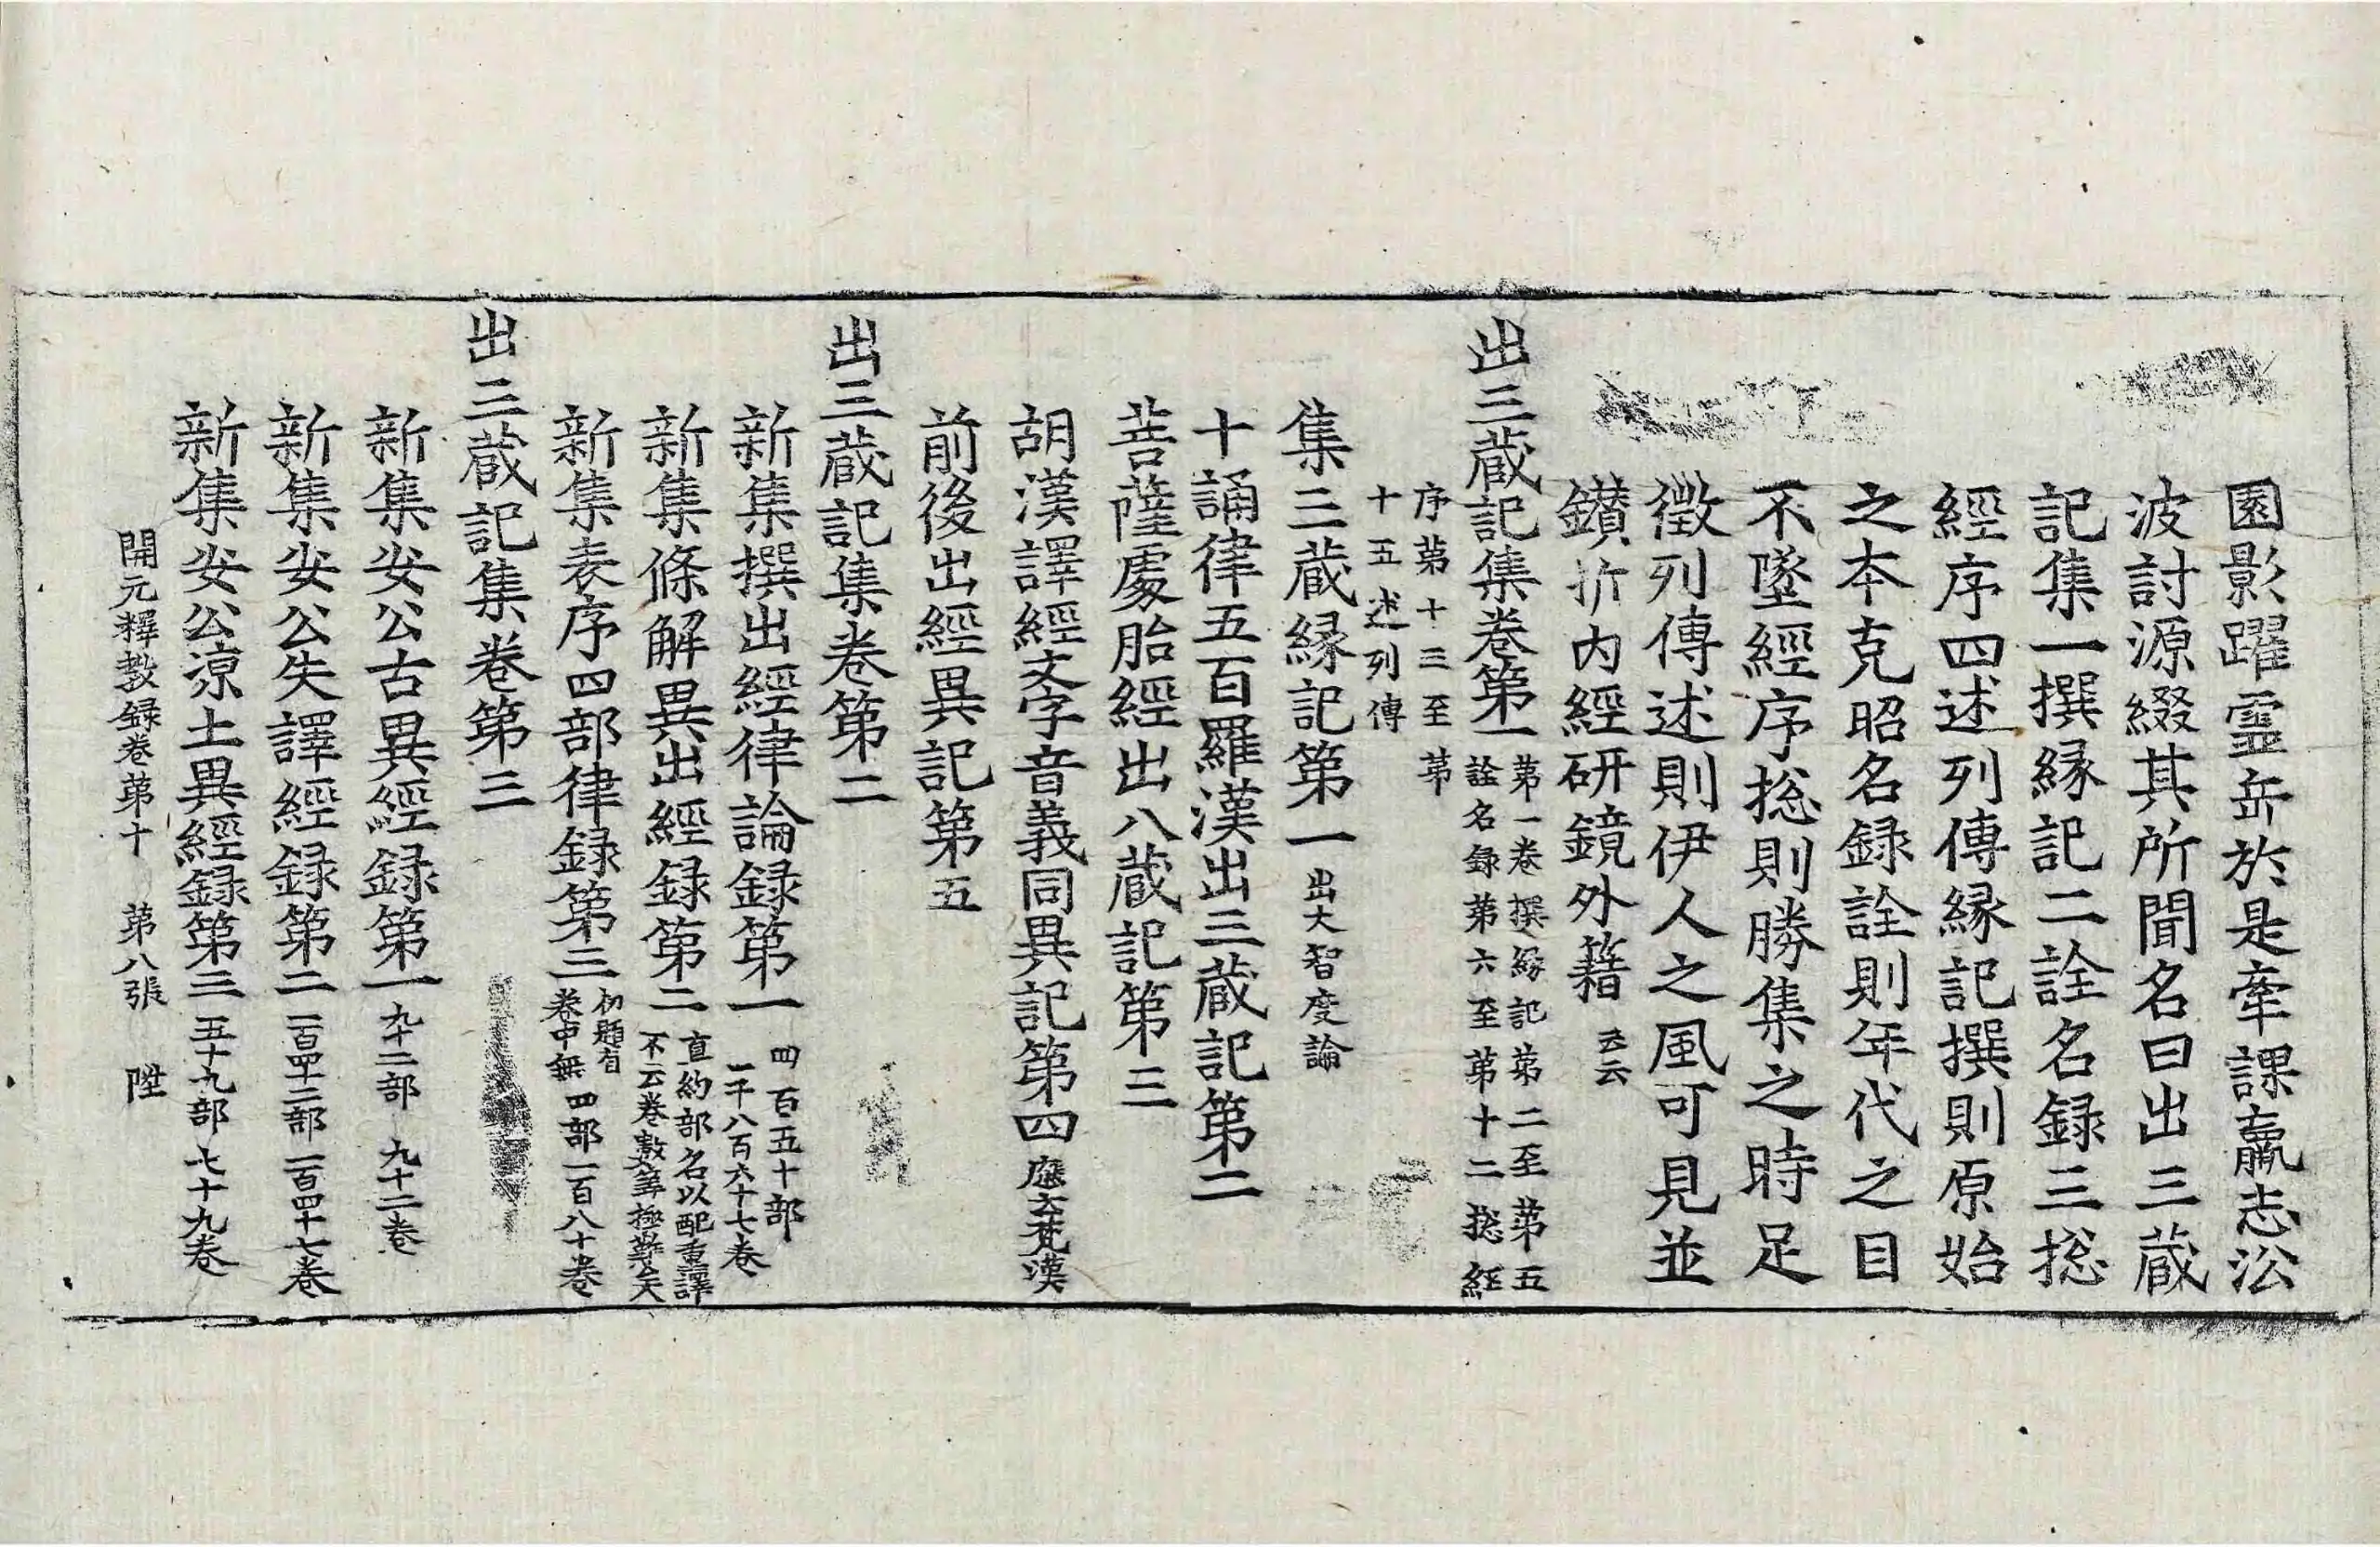 園影躍靈岳於是牽課羸志沿
波討源綴其所聞名曰出三蔵
記集一撰縁記二詮名録三捴
經序四述列傳縁記撰則原始
之本克昭名録詮則年代之目
不墜經序捴則勝集之時足
徵列傳述則伊人之風可見並
鑚㭊内經研鏡外籍云云
出三蔵記集卷第一
第一卷撰縁記第二至第五
詮名録第六至第十二捴經
序第十三至第
十五述列傳
集三蔵縁記第一出大智度論
十誦律五百羅漢出三蔵記第二
菩薩處胎經出八蔵記第三
胡漢譯經文字音義同異記第四應云梵漢
前後出經異記第五
出三蔵記集卷第二
新集撰出經律論録第一
四百五十部
一千八百六十七卷
新集條解異出經録第二
直約部名以配重譯
不云卷數筭極難矣
新集表序四部律録第三
初題有
卷中無
四部一百八十卷
出三蔵記集卷第三
新集安公古異經録第一九十二部 九十二卷
新集安公失譯經録第二一百四十二部 一百四十七卷
新集安公涼土異經録第三五十九部 七十九卷
開元釋教録卷第十 第八張 陞